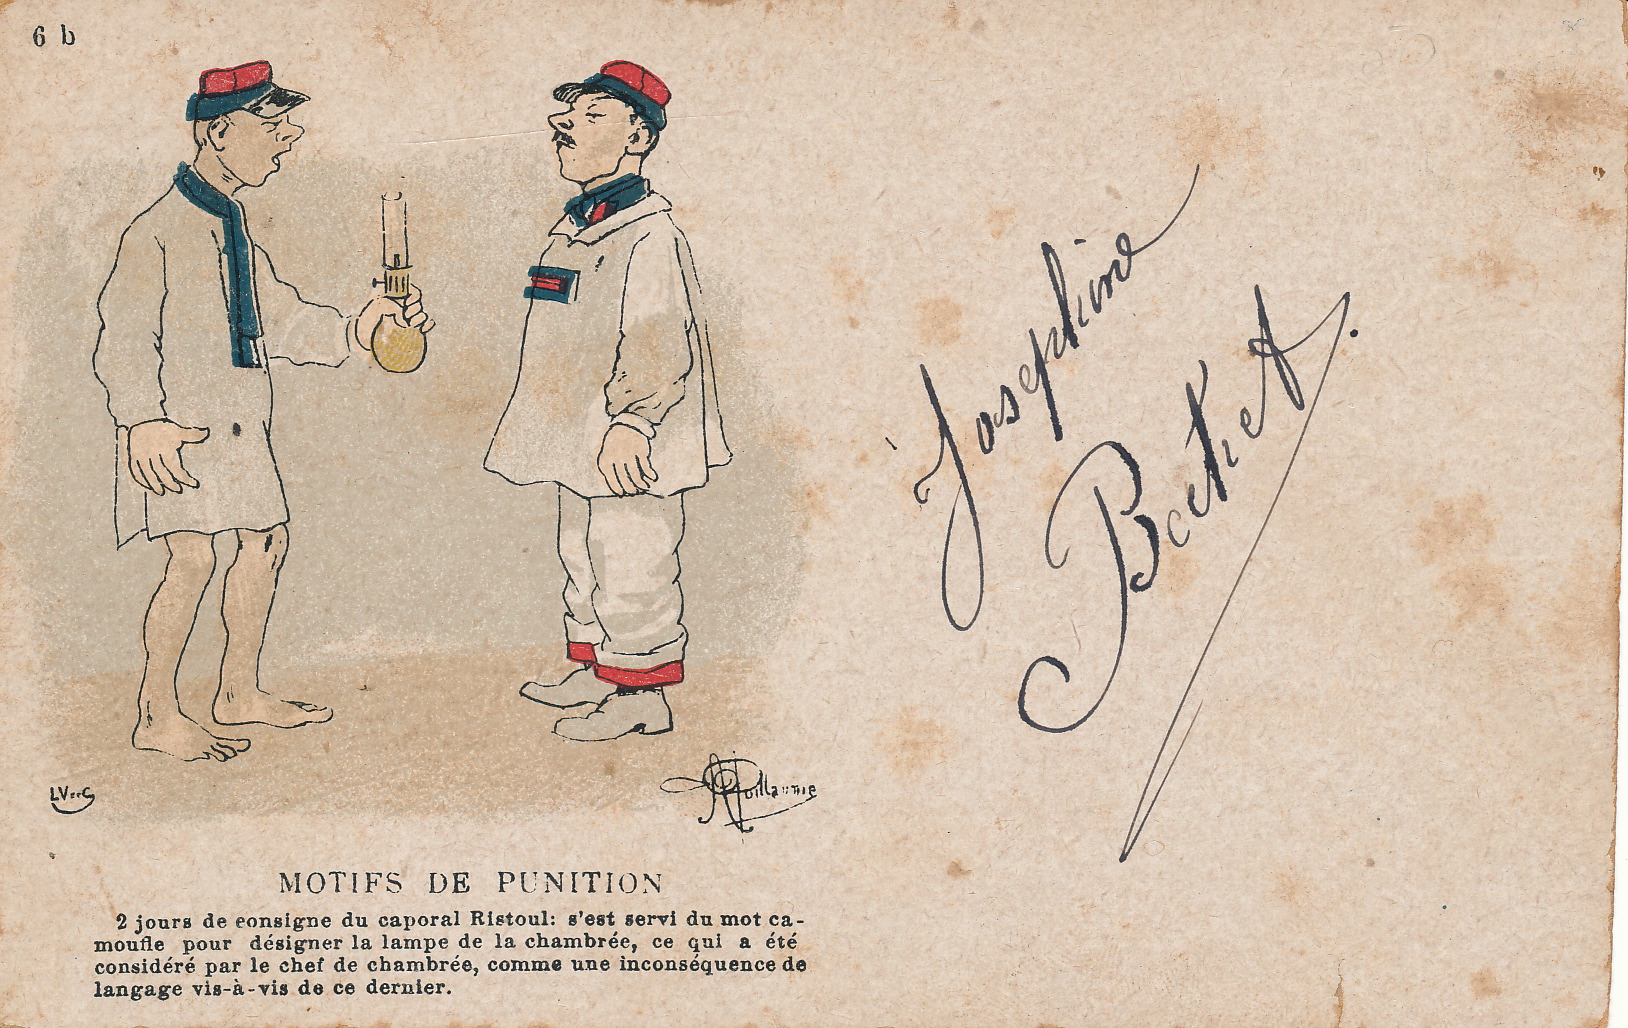 6 b
Josephine
LV & C
A Guillaume
MOTIFS DE PUNITION
2 jours de consigne du caporal Ristoul: s'est servi du mot ca-
moufle pour désigner la lampe de la chambrée, ce qui a été
considéré par le chef de chambrée, comme une inconséquence de
langage vis-à-vis de ce dernier.